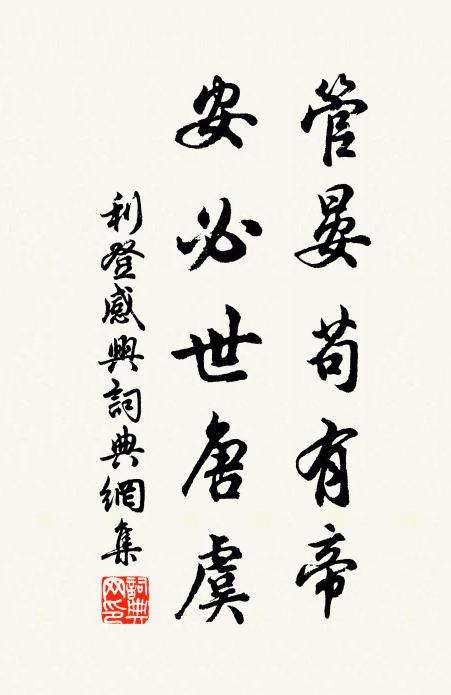 管晏苟有帝
安必世唐虞
利登感興詞典網集
詞典網印